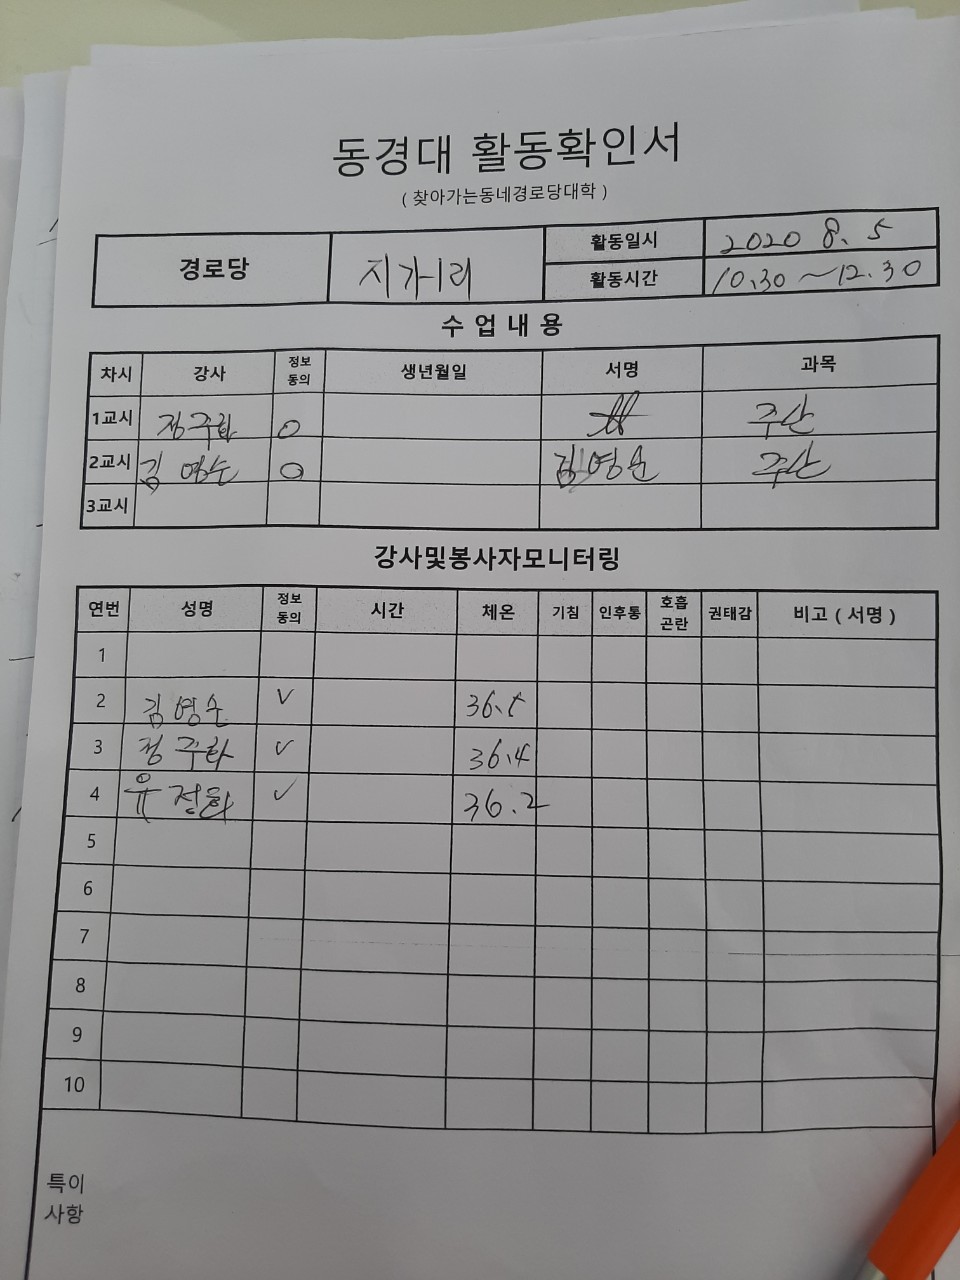 동경대 활동확인서
( 찾아가는동네경로당대학 )
경로당 지가리 활동일시 2020 8. 5
활동시간 10.30 ~12.30
수 업 내 용
차시 강사 정보 동의 생년월일 서명 과목
1교시 정주하 O 주산
2교시 김영순 O 김영순 주산
3교시
강사및봉사자모니터링
연번 성명 정보 동의 시간 체온 기침 인후통 호흡 곤란 권태감 비고 ( 서명 )
1
2 김영순 V 36.5
3 정주하 V 36.4
4 유정화 V 36.2
5
6
7
8
9
10
특이
사항